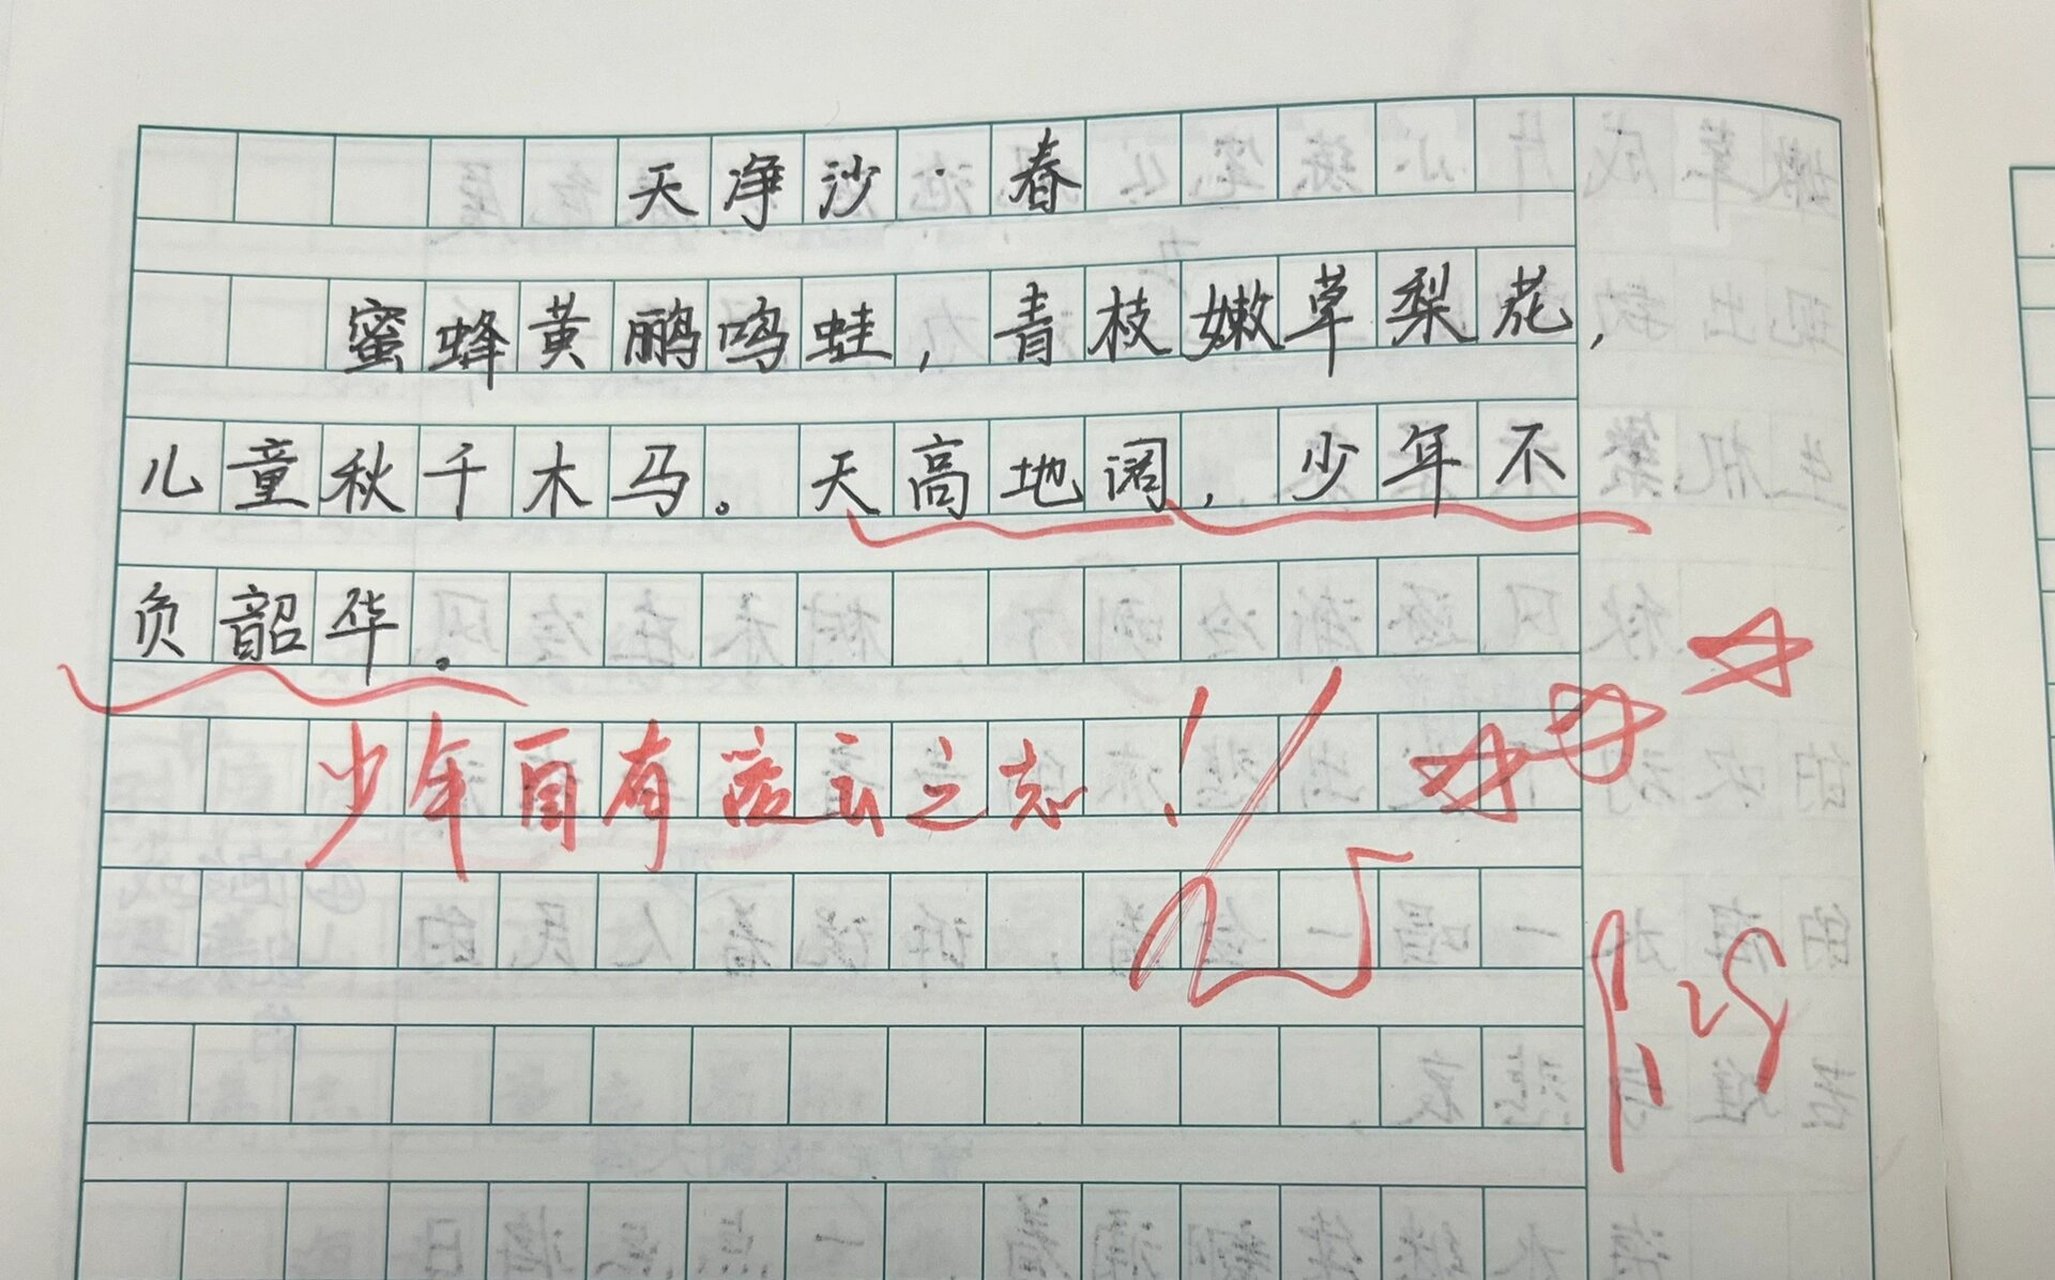 天净沙·春
蜜蜂黄鹂鸣蛙，青枝嫩草梨花，
儿童秋千木马。天高地阔，少年不
负韶华。
少年自有凌云之志！